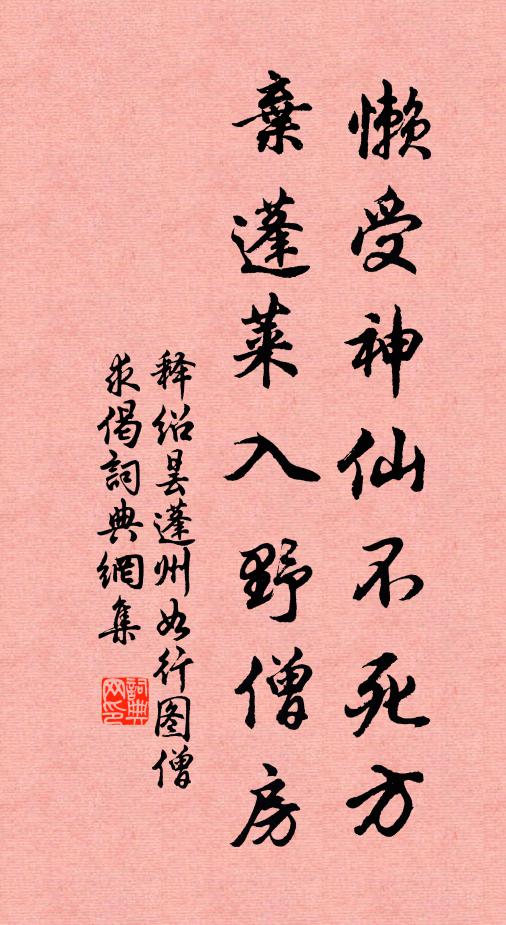 懒受神仙不死方
棄蓬莱入野僧房
释绍昙蓬州如行图僧
求偈詞典網集
詞典网印